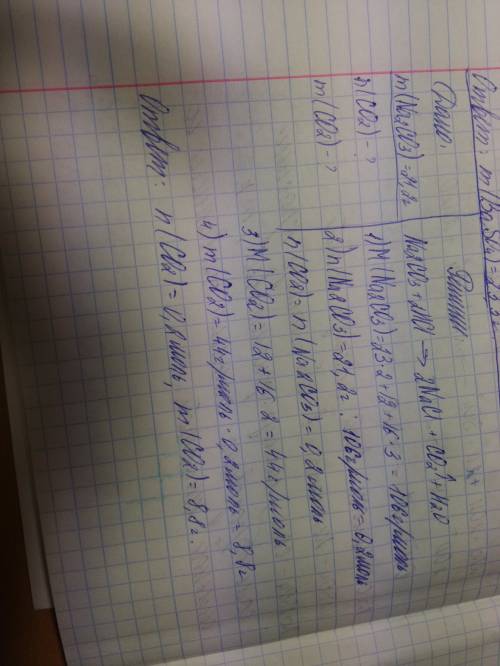 Ответ: m(Ba
Дано:
m(Na2CO3)=21,2г
n(CO2)-?
m(CO2)-?
Решение:
Na2CO3+2HCl → 2NaCl+CO2↑+H2O
1) M(Na2CO3)=23·2+12+16·3=106г/моль
2) n(Na2CO3)=21,2г : 106г/моль=0,2моль
n(CO2)=n(Na2CO3)=0,2моль
3) M(CO2)=12+16·2=44г/моль
4) m(CO2)=44г/моль·0,2моль=8,8г
Ответ: n(CO2)=0,2моль, m(CO2)=8,8г.